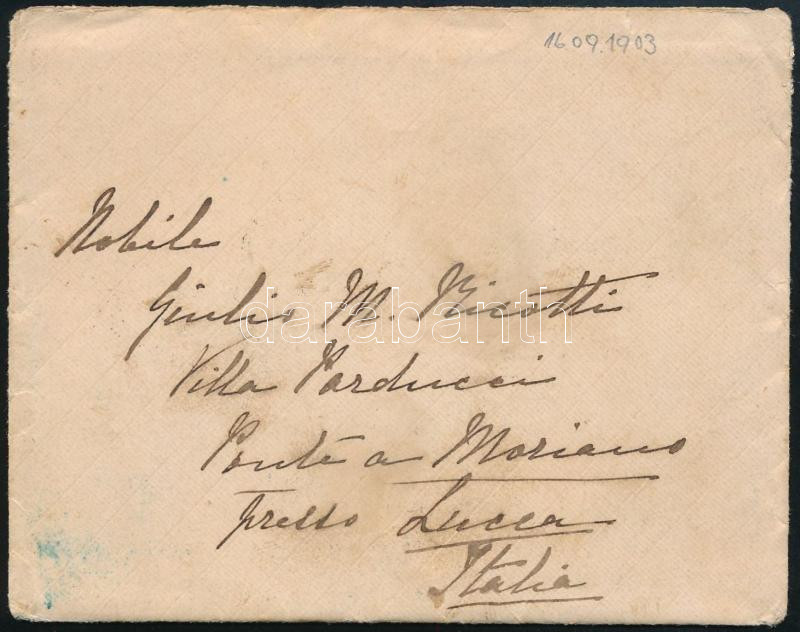 16.09.1903
Nobile
Giulio M. Ricotti
darabanth
Villa Parducci
Ponte a Moriano
presso Lucca
Italia